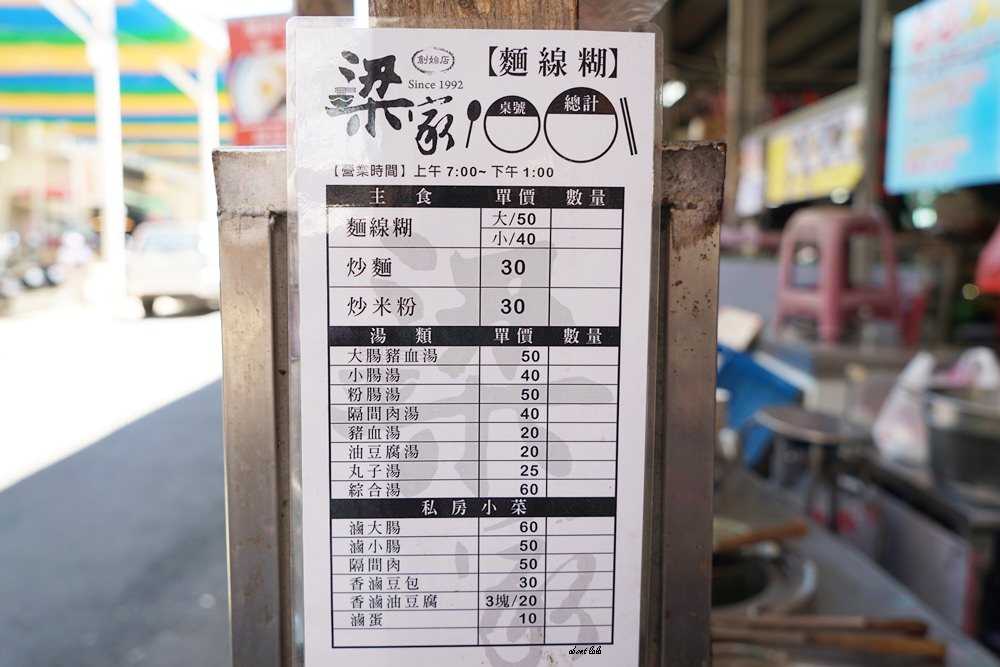 創始店
【麵線糊】
Since 1992
梁家
桌號
總計
【營業時間】上午 7:00~ 下午 1:00
主食 單價 數量
麵線糊 大/50
小/40
炒麵 30
炒米粉 30
湯類 單價 數量
大腸豬血湯 50
小腸湯 40
粉腸湯 50
隔間肉湯 40
豬血湯 20
油豆腐湯 20
丸子湯 25
綜合湯 60
私房小菜
滷大腸 60
滷小腸 50
隔間肉 50
香滷豆包 30
香滷油豆腐 3塊/20
滷蛋 10
about lulu